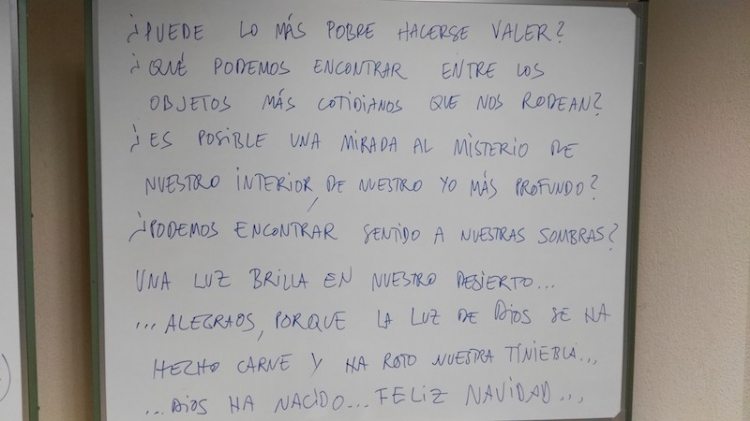 ¿PUEDE LO MÁS POBRE HACERSE VALER?
¿QUÉ PODEMOS ENCONTRAR ENTRE LOS
OBJETOS MÁS COTIDIANOS QUE NOS RODEAN?
¿ES POSIBLE UNA MIRADA AL MISTERIO DE
NUESTRO INTERIOR, DE NUESTRO YO MÁS PROFUNDO?
¿PODEMOS ENCONTRAR SENTIDO A NUESTRAS SOMBRAS?
UNA LUZ BRILLA EN NUESTRO DESIERTO...
...ALEGRAOS, PORQUE LA LUZ DE DIOS SE HA
HECHO CARNE Y HA ROTO NUESTRA TINIEBLA...
...DIOS HA NACIDO...FELIZ NAVIDAD...